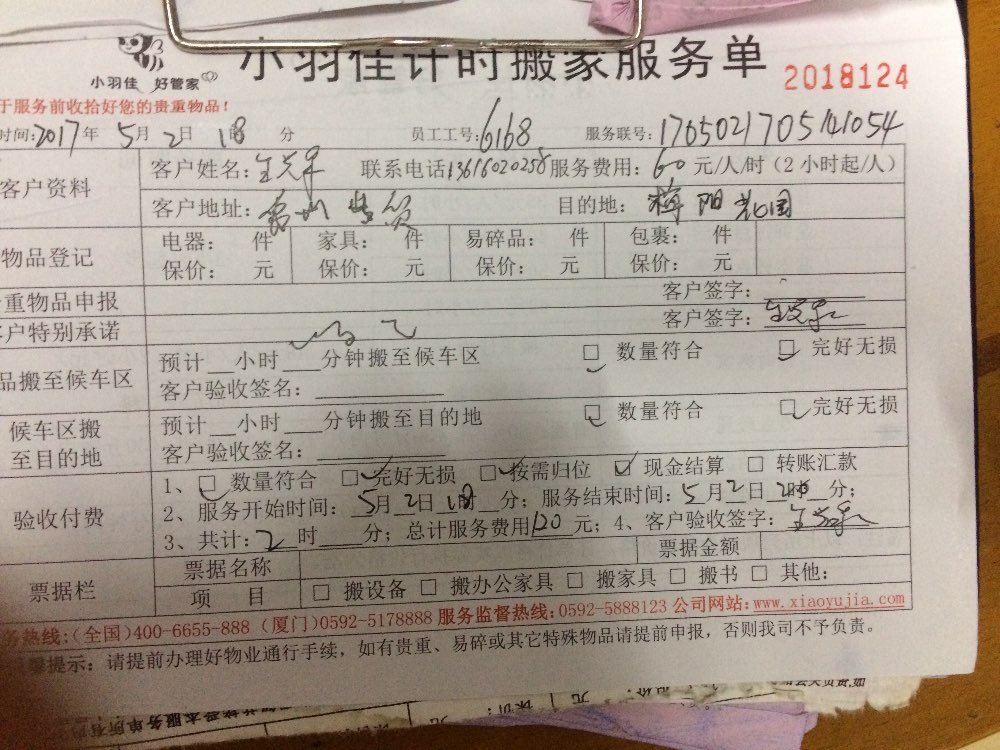 小羽佳 好管家
小羽佳计时搬家服务单
2018124
于服务前收拾好您的贵重物品！
时间:2017年5月2日18时 分 员工工号:6168 服务联号:1765021705141054
客户资料
客户姓名: 联系电话13616020258 服务费用: 60 元/人/时(2小时起/人)
客户地址: 目的地: 梅阳花园
物品登记
电器: 件 家具: 件 易碎品: 件 包裹: 件
保价: 元 保价: 元 保价: 元 保价: 元
重物品申报 客户签字:
户特别承诺 客户签字:
品搬至候车区
预计__小时___分钟搬至候车区 □ 数量符合 □ 完好无损
客户验收签名:
候车区搬至目的地
预计__小时___分钟搬至目的地 □ 数量符合 □ 完好无损
客户验收签名:
验收付费
1、□ 数量符合 □ 完好无损 □ 按需归位 ☑ 现金结算 □ 转账汇款
2、服务开始时间: 5月2日18时__分; 服务结束时间: 5月2日20时__分;
3、共计: 2时 分; 总计服务费用120元; 4、客户验收签字:
票据栏
票据名称 票据金额
项 目 □ 搬设备 □ 搬办公家具 □ 搬家具 □ 搬书 □ 其他:
务热线:(全国)400-6655-888 (厦门)0592-5178888 服务监督热线:0592-5888123 公司网站:www.xiaoyujia.com
提示: 请提前办理好物业通行手续，如有贵重、易碎或其它特殊物品请提前申报，否则我司不予负责。